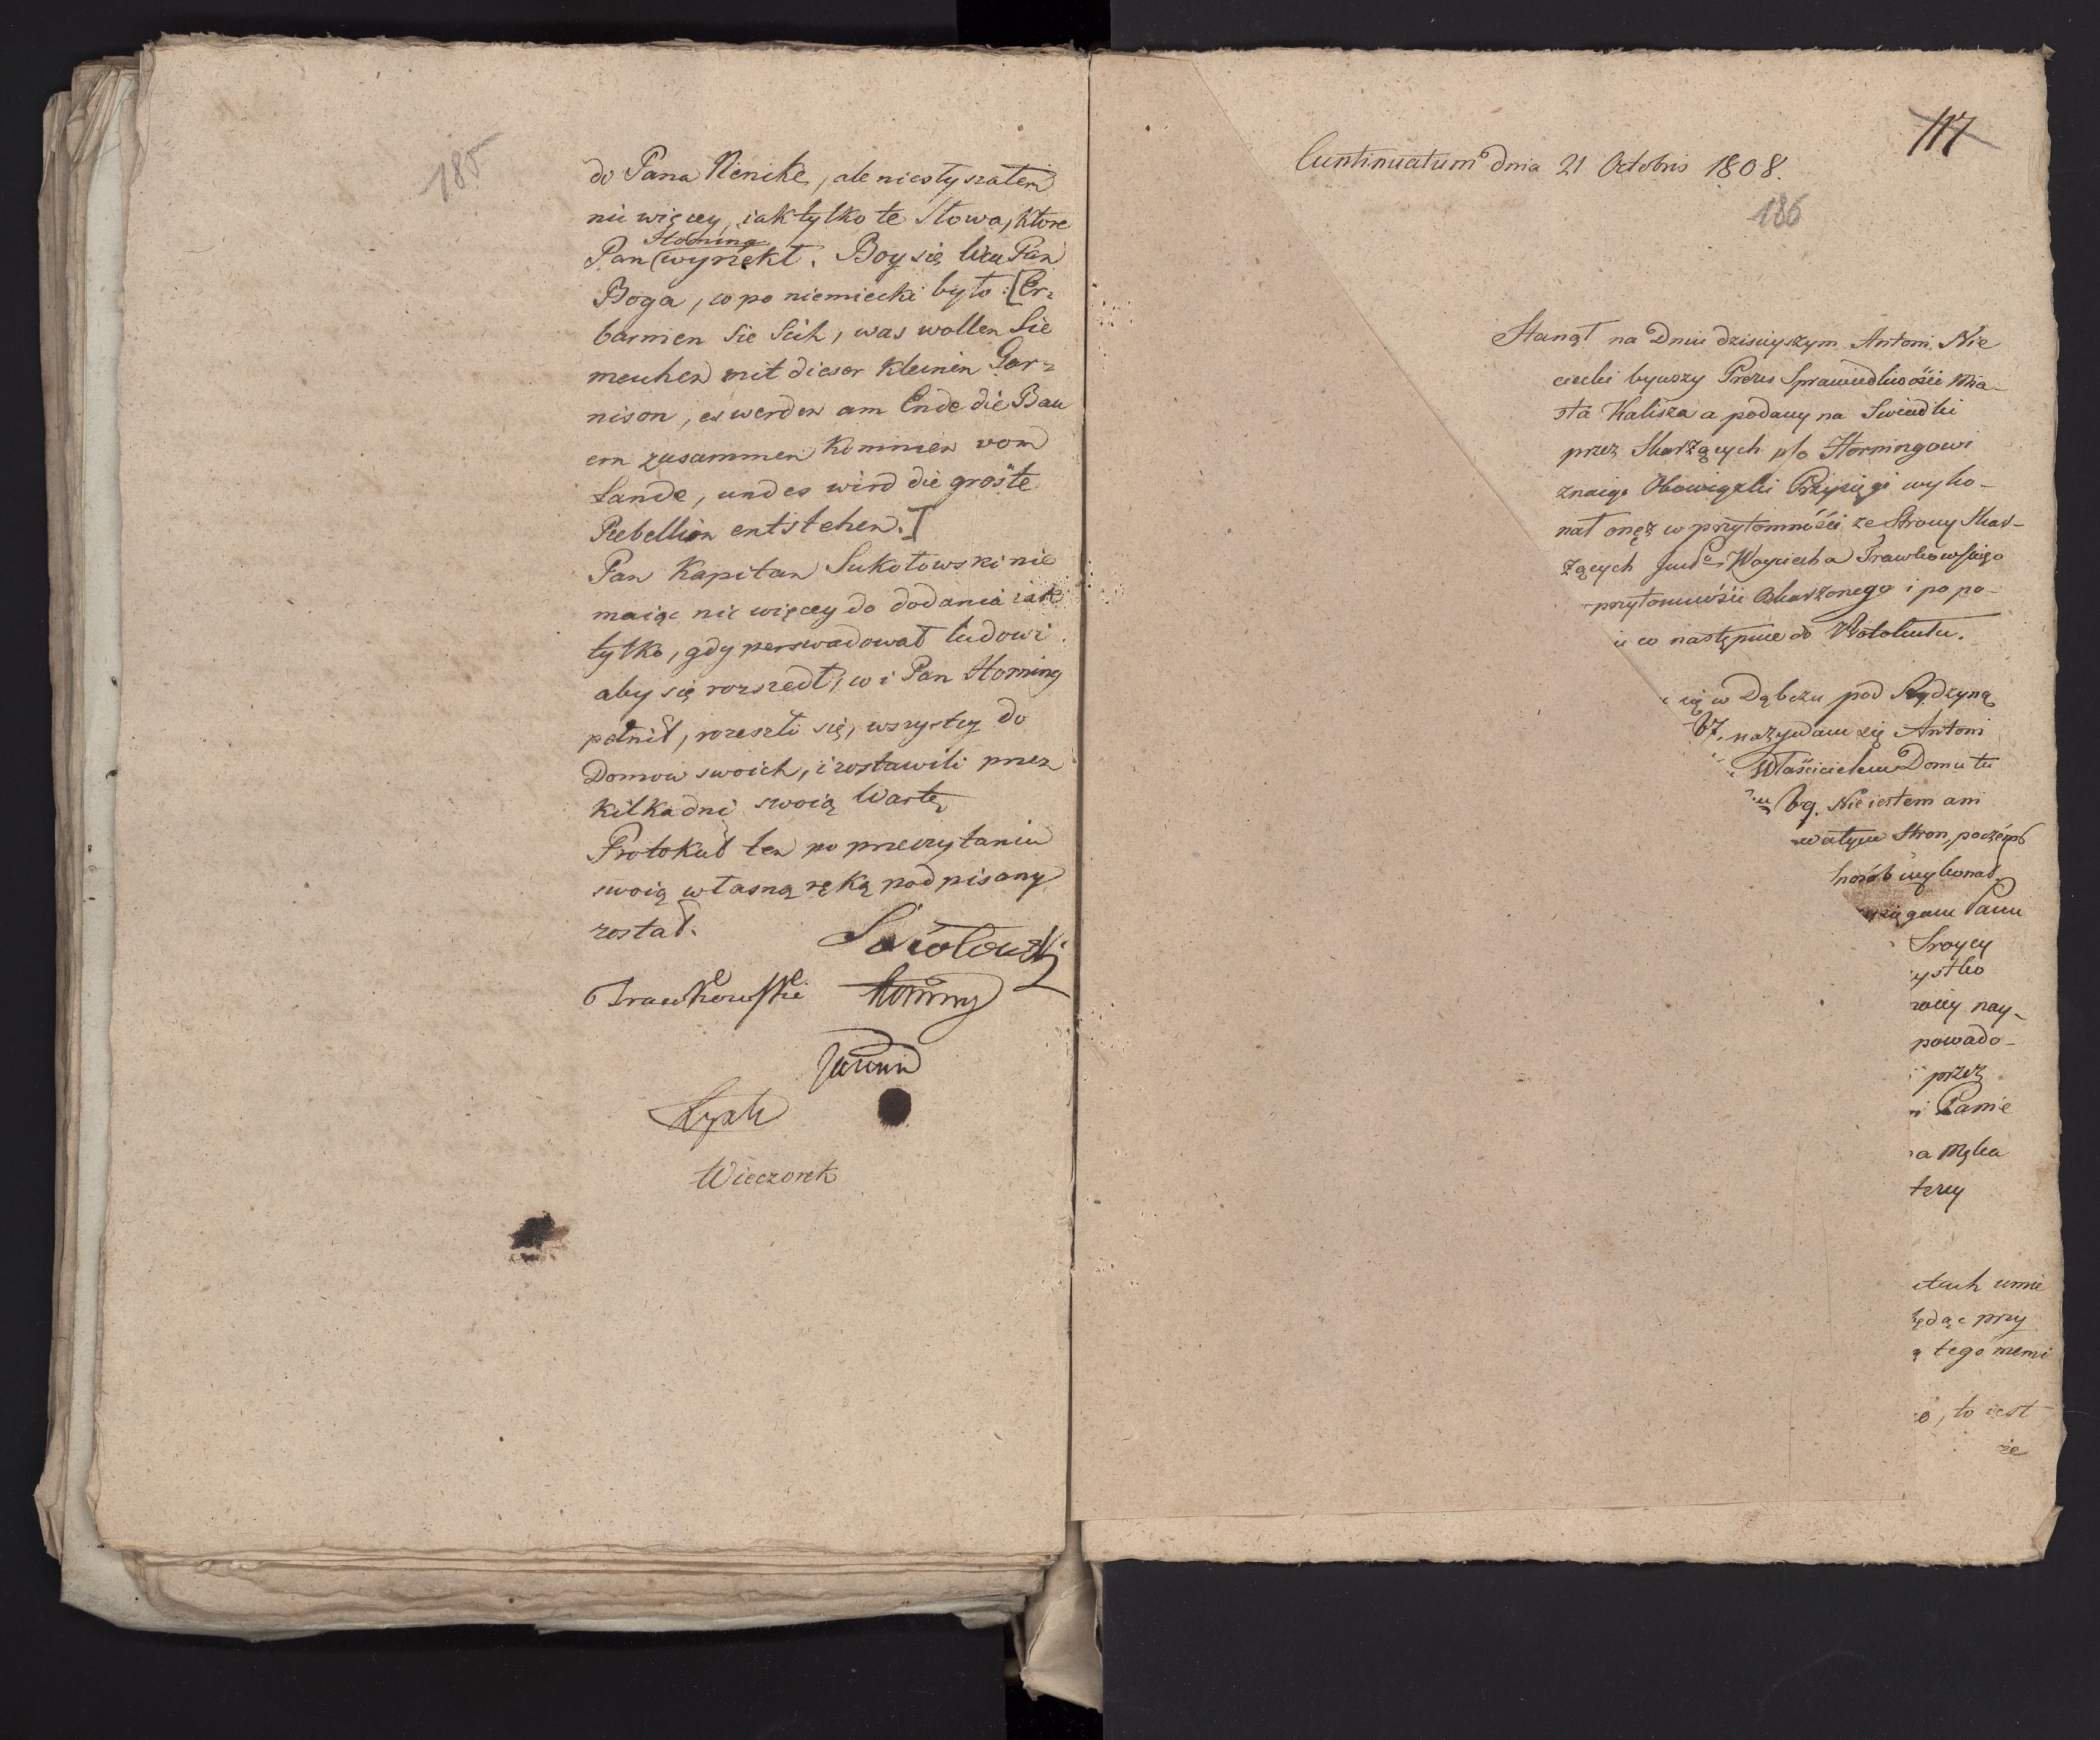 185
do Pana Nenike, ale niesłyszałem
nic więcey, iak tylko te Słowa, ktore
Horning
Pan wyriekł. Boy się Wćn Pan
Boga, co po niemiecki było: [Er=
barmen Sie Sich, was wollen Sie
meuhen mit dieser kleinen Gar=
nison, es werden am Ende die Bau
ern zusammen kommen vom
Lande, und es wird die größte
Rebellion entstehen.]
Pan Kapitan Sukołowski nie
maiąc nic więcey do dodania iak
tylko, gdy perswadował ludowi
aby się rozszedł, co i Pan Horning
pełnił, rozeszli się, wszystcy do
Domow swoich, i zostawili przez
kilka dni swoią Wartę
Protokuł ten po przeczytaniu
swoią własną ręką podpisany
został.
Sokołowski
Trawkowski Horning
Wieczorek
117
Cuntinuatum dnia 21 Octobris 1808.
186
Stanął na Dniu dzisieyszym Antoni Nie
ciecki bywszy Prezes Sprawiedliwości Mia-
sta Kalisza a podany na Swiadki
przez Skarżących p/o Horningowi
znaiąc Obowiązki Przysięgi wyko-
nał onęż w przytomności ze Strony Skar-
żących Woyciecha Trawkowskiego
przytomności Oskarżonego i po po-
u co następuie do Protokułu.
się w Dąbczu pod Rydzyną
nazywam się Antoni
Właścicielem Domu tu
Nie iestem ani
Stron, poczémb
sposób wykonał
ysięgam Panu
Troycy
ystko
wiey nay-
powado-
przez
Panie
a Męka
terey
ktach umie
będąc przy
tego memi
o, to iest
że